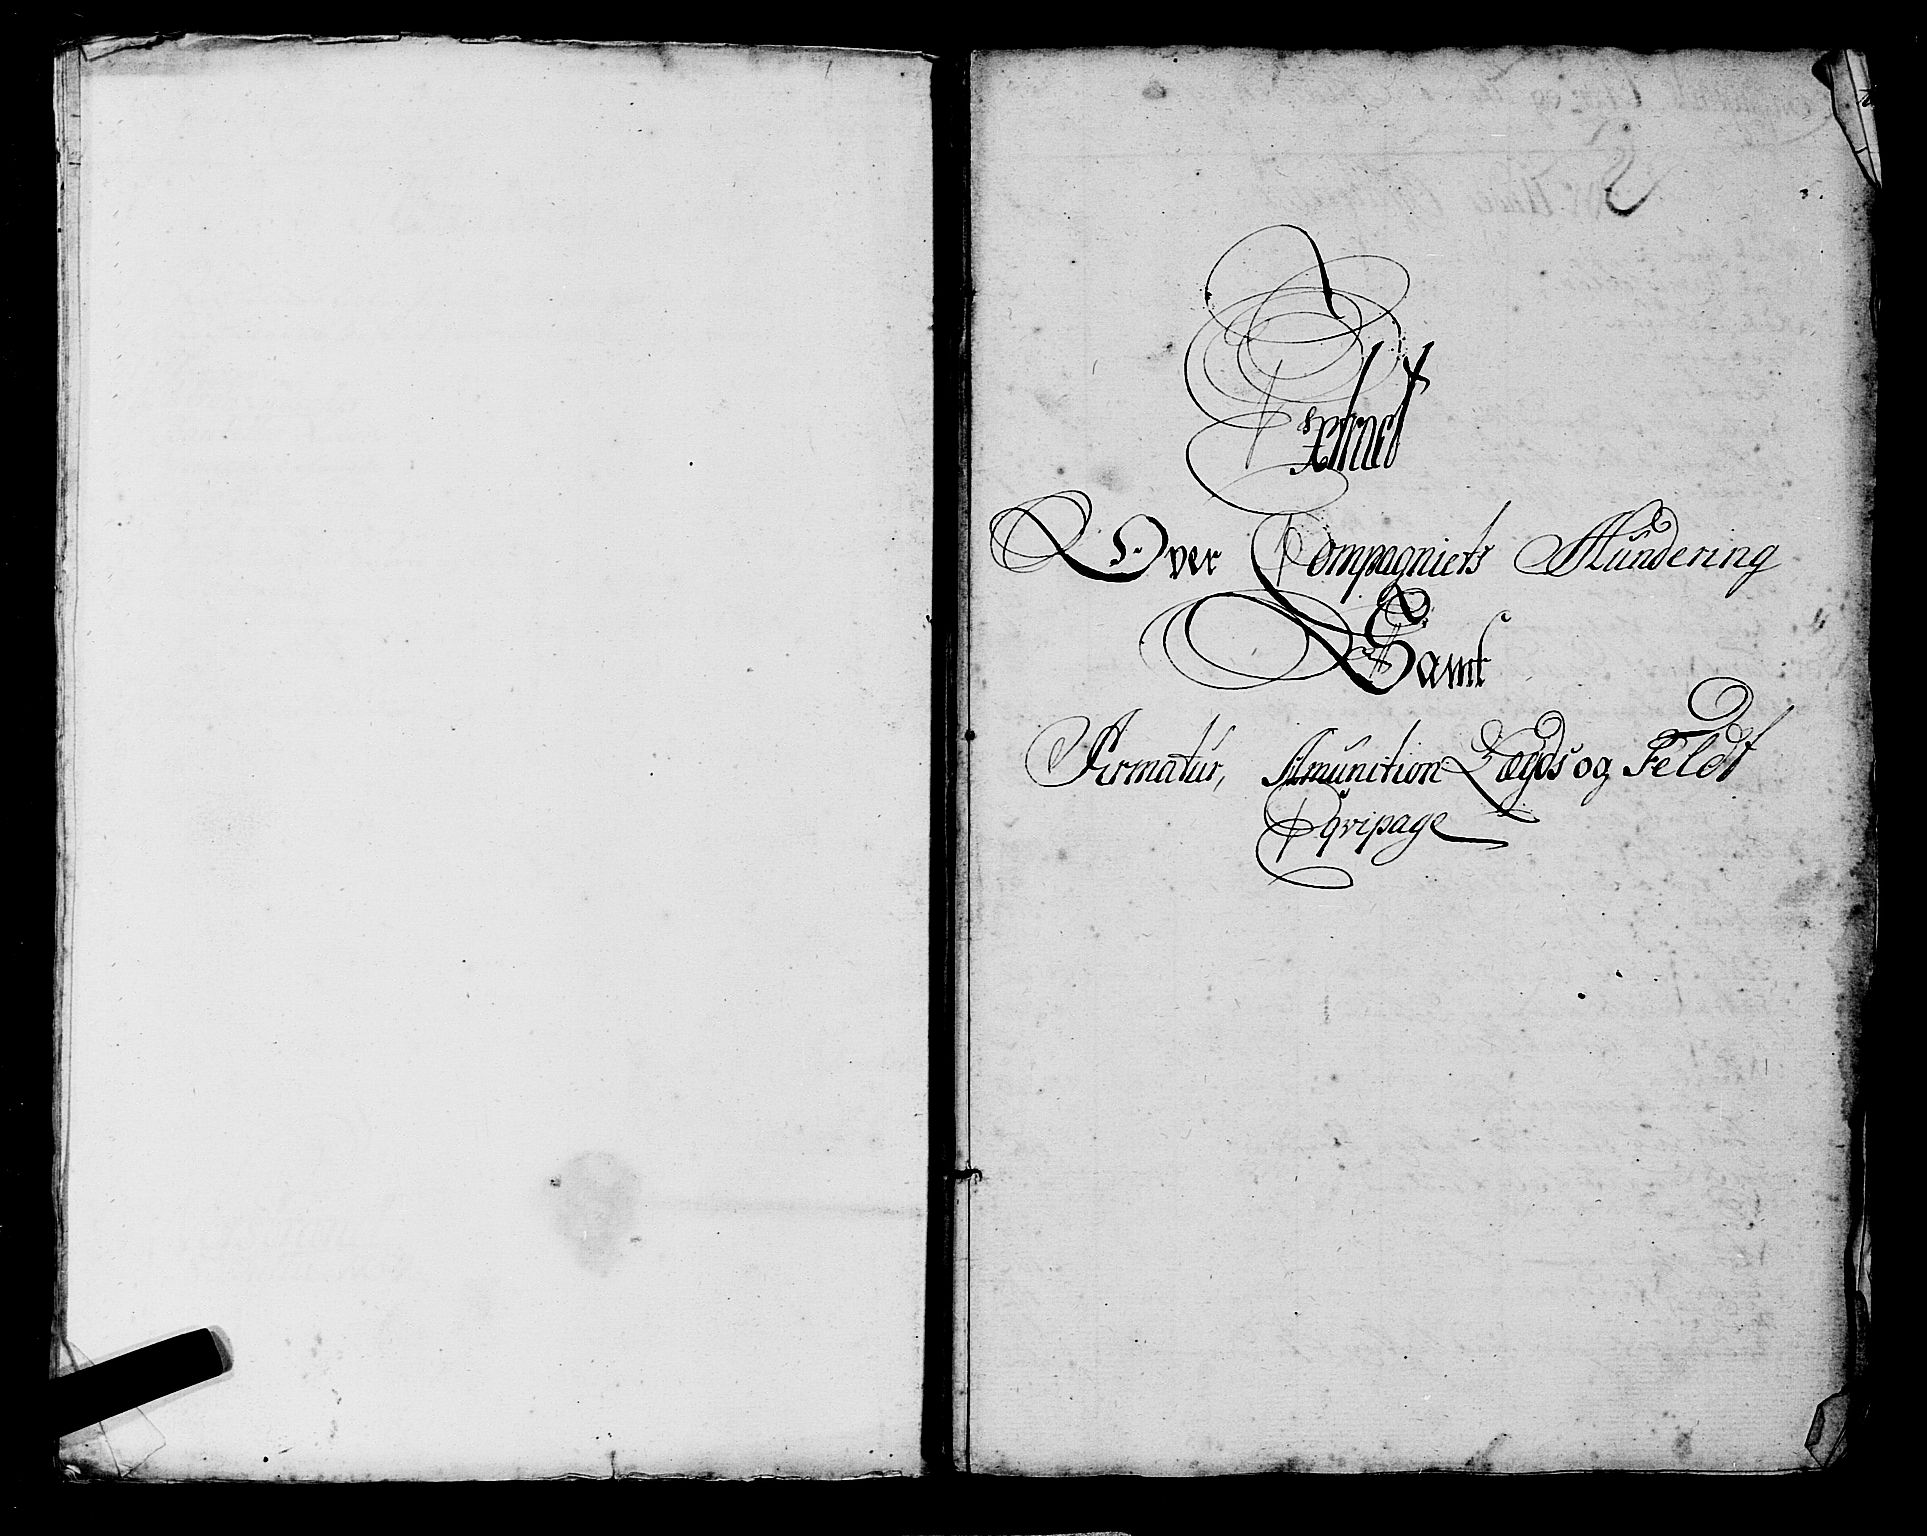 Extract
Over Compagniets Mundering
Samt
Armatur, Amunition Lægds og Feldt
Eqvipage